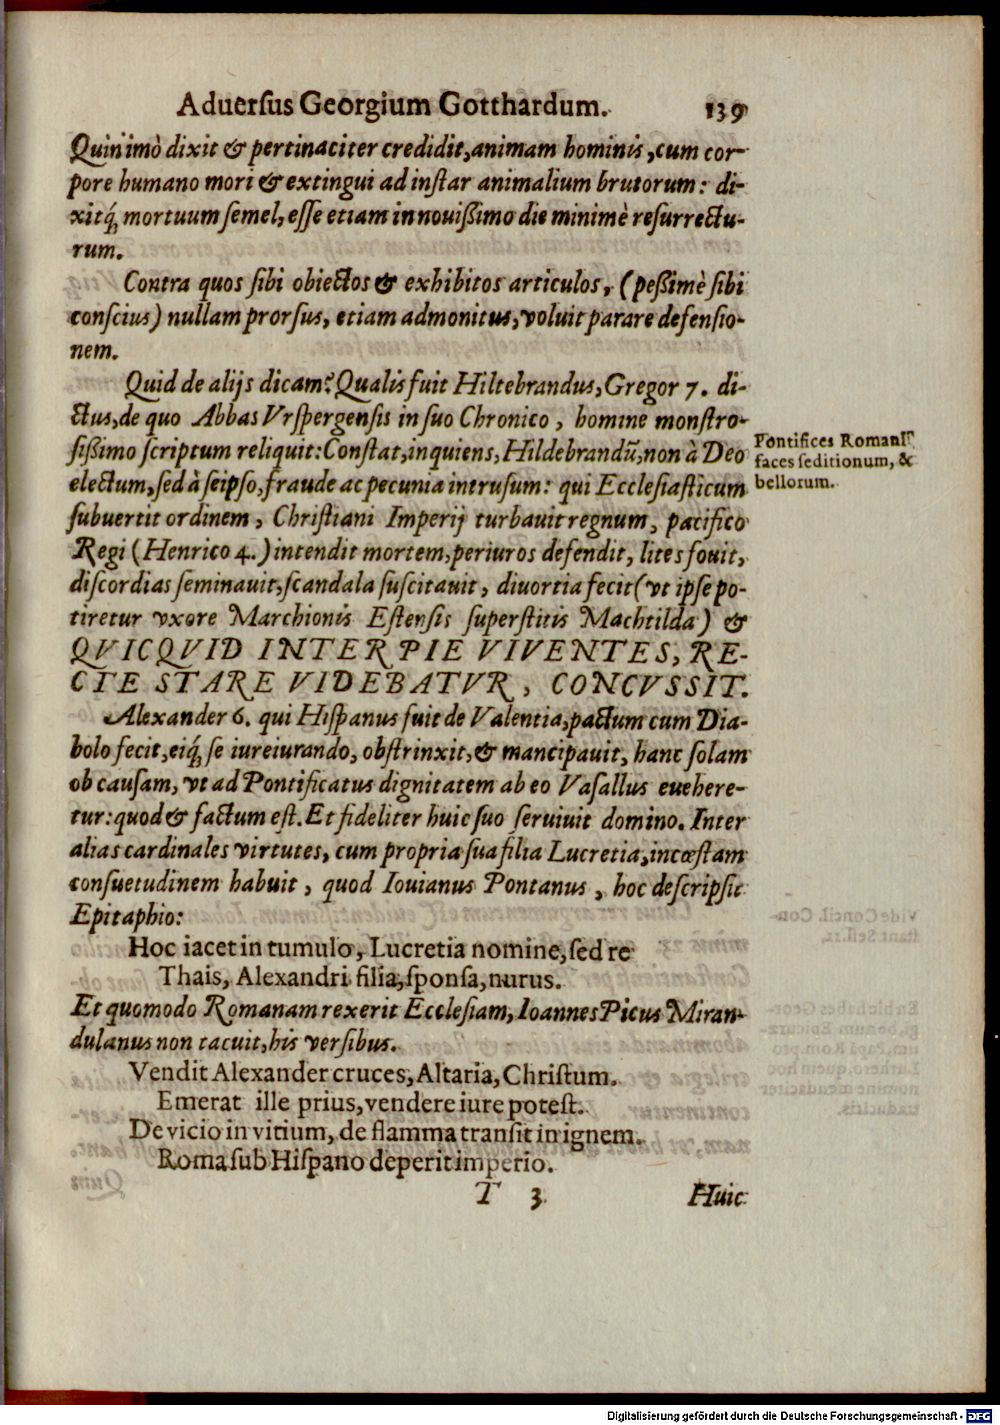 Aduersus Georgium Gotthardum. 139
Quinimò dixit & pertinaciter credidit, animam hominis, cum cor-
pore humano mori & extingui ad instar animalium brutorum: di-
xitq́; mortuum semel, esse etiam in nouißimo die minimè resurrectu-
rum.
Contra quos sibi obiectos & exhibitos articulos, (peßimè sibi
conscius) nullam prorsus, etiam admonitus, voluit parare defensio-
nem.
Quid de alijs dicam? Qualis fuit Hiltebrandus, Gregor 7. di-
ctus, de quo Abbas Vrspergensis in suo Chronico, homine monstro-
sißimo scriptum reliquit: Constat, inquiens, Hildebrandũ, non à Deo
electum, sed à seipso, fraude ac pecunia intrusum: qui Ecclesiasticum
subuertit ordinem, Christiani Imperij turbauit regnum, pacifico
Regi (Henrico 4.) intendit mortem, periuros defendit, lites fouit,
discordias seminauit, scandala suscitauit, diuortia fecit (vt ipse po-
tiretur vxore Marchionis Estensis superstitis Machtilda) &
QVICQVID INTER PIE VIVENTES, RE-
CTE STARE VIDEBATVR, CONCVSSIT.
Alexander 6. qui Hispanus fuit de Valentia, pactum cum Dia-
bolo fecit, eiq́; se iureiurando, obstrinxit, & mancipauit, hanc solam
ob causam, vt ad Pontificatus dignitatem ab eo Vasallus euehere-
tur: quod & factum est. Et fideliter huic suo seruiuit domino. Inter
alias cardinales virtutes, cum propria sua filia Lucretia, incœstam
consuetudinem habuit, quod Iouianus Pontanus, hoc descripsit
Epitaphio:
Hoc iacet in tumulo, Lucretia nomine, sed re
Thais, Alexandri filia, sponsa, nurus.
Et quomodo Romanam rexerit Ecclesiam, Ioannes Picus Miran-
dulanus non tacuit, his versibus.
Vendit Alexander cruces, Altaria, Christum.
Emerat ille prius, vendere iure potest.
De vicio in vitium, de flamma transit in ignem.
Roma sub Hispano deperit imperio.
T 3 Huic
Pontifices Romani
faces seditionum, &
bellorum.
Digitalisierung gefördert durch die Deutsche Forschungsgemeinschaft - DFG